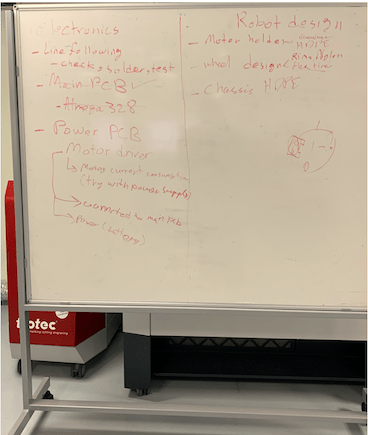 Electronics
- Line following
- check & solder + test
- Main PCB ✓
- Atmega 328
- Power PCB
- Motor driver
↳ current consumption
(try with power supply)
→ connected to main pcb
→ Power (battery)
Robot design
- Motor holder HDPE
- wheel design
- Chassis HDPE
trotec